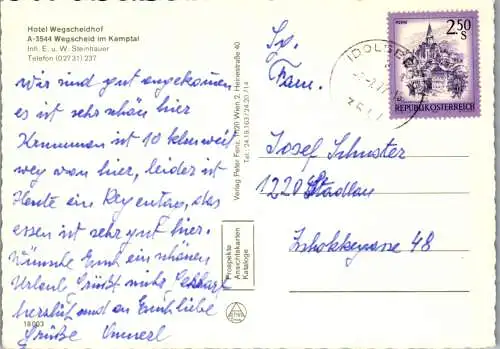 Hotel Wegscheidhof
A-3544 Wegscheid im Kamptal
Inh. E. u. W. Steinbauer
Telefon (02731) 237
wir sind gut angekommen
es ist sehr schön hier
Krummau ist 10 klm weit
weg von hier, leider ist
Heute ein Regentag, das
essen ist sehr gut hier.
Wünsche Euch ein schönen
Urlaub Grüßt mir
herzlich und an Euch liebe
Grüße
18003
Verlag Peter Feinz, 1020 Wien 2, Heinestraße 40
Tel.: 24 19 103 / 24 20 / 14
Prospekte
Ansichtskarten
Kataloge
Fam.
Josef Schuster
1220 Stadlau
Zschokkegasse 48
IDOLSBERG
2.50
S
REPUBLIK ÖSTERREICH